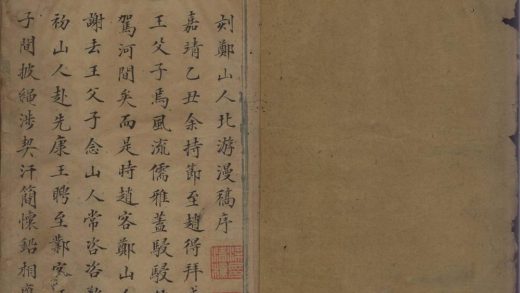 刻鄭山人北游漫稿序
嘉靖乙丑余持節至趙得拜
王父子焉風流儒雅蓋駸駸
駕河間矣而是時趙客鄭山人
謝去王父子念山人常咨咨
初山人赴先康王聘至鄴
子間披繩涉契汗簡懷鉛相